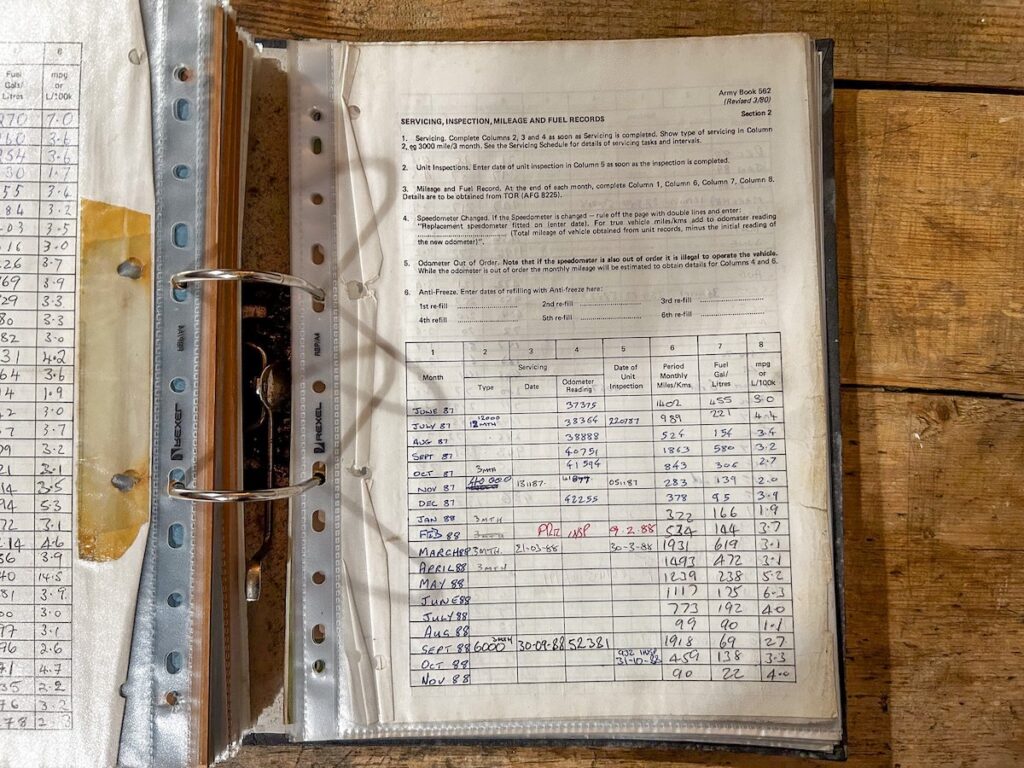 8
Fuel mpg
Gals/ or
Litres L/100k
270 7.0
3.6
254 3.6
30 1.7
55 3.4
84 3.2
03 3.5
16 3.0
26 3.7
69 3.9
29 3.3
80 3.3
82 3.0
31 4.2
64 3.6
1.9
3.0
3.7
3.2
21 3.1
14 3.5
94 5.3
72 3.1
214 4.6
3.9
40 14.5
81 3.9
3.0
97 3.1
96 2.6
71 4.7
35 2.2
76 3.2
278
REXEL
REXEL
Army Book 562
(Revised 3/80)
Section 2
SERVICING, INSPECTION, MILEAGE AND FUEL RECORDS
1. Servicing. Complete Columns 2, 3 and 4 as soon as Servicing is completed. Show type of servicing in Column
2, eg 3000 mile/3 month. See the Servicing Schedule for details of servicing tasks and intervals.
2. Unit Inspections. Enter date of unit inspection in Column 5 as soon as the inspection is completed.
3. Mileage and Fuel Record. At the end of each month, complete Column 1, Column 6, Column 7, Column 8.
Details are to be obtained from TOR (AFG 8225).
4. Speedometer Changed. If the Speedometer is changed — rule off the page with double lines and enter:
"Replacement speedometer fitted on (enter date). For true vehicle miles/kms add to odometer reading
.................. (Total mileage of vehicle obtained from unit records, minus the initial reading of
the new odometer)".
5. Odometer Out of Order. Note that if the speedometer is also out of order it is illegal to operate the vehicle.
While the odometer is out of order the monthly mileage will be estimated to obtain details for Columns 4 and 6.
6. Anti-Freeze. Enter dates of refilling with Anti-freeze here:
1st re-fill .................. 2nd re-fill .................. 3rd re-fill ..................
4th refill .................. 5th re-fill .................. 6th re-fill ..................
1 2 3 4 5 6 7 8
Month Servicing Date of Unit Inspection Period Monthly Miles/Kms Fuel Gal/ Litres mpg or L/100k
Type Date Odometer Reading
JUNE 87 37375 1402 455 3.0
JULY 87 12000 12 MTH 38364 220787 989 221 4.4
AUG 87 38888 524 154 3.4
SEPT 87 40751 1863 580 3.2
OCT 87 41594 843 306 2.7
NOV 87 3MTH 40 000 131187 41877 051187 283 139 2.0
DEC 87 42255 378 95 3.9
JAN 88 3MTH 322 166 1.9
FEB 88 INSP 9.2.88 534 144 3.7
MARCH 88 3MTH. 21-03-88 30-3-88 1931 619 3.1
APRIL 88 3MTH 1493 472 3.1
MAY 88 1239 238 5.2
JUNE 88 1117 175 6.3
JULY 88 773 192 4.0
AUG 88 99 90 1.1
SEPT 88 6000 3MTH 30-09-88 52381 1918 69 27
OCT 88 INSP 31-10-88 459 138 3.3
NOV 88 90 22 4.0